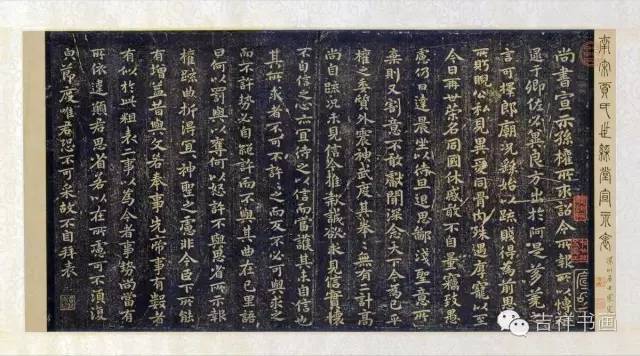 南宋賈氏世綵堂宣示表
尚書宣示孫權所求詔令所報所以博示
逮于卿佐必冀良方出於阿是芻蕘之
言可擇郎廟況繇始以疏賤得為前恩橫
所眄睨公私見異愛同骨肉殊遇厚寵以至
今日再世榮名同國休慼敢不自量竊致愚
慮仍日達晨坐以待旦退思鄙淺聖意所
棄則又割意不敢獻聞深念天下今為已平
權之委質外震神武度其拳拳無有二計高
尚自疏況未見信今推款誠欲求見信實懷
不自信之心亦宜待之以信而當護其未自信也
其所求者不可不許許之而反不必可與求之
而不許勢必自絕許而不與其曲在己里語
曰何以罰與以奪何以怒許不與思省所示報
權疏曲折得宜宜神聖之慮非今臣下所能
有增益昔與文若奉事先帝事有數者
有似於此粗表二事以為今者事勢尚當有
所依違願君思省若以在所慮可不須復
貌節度唯君恐不可采故不自拜表
吉祥书画